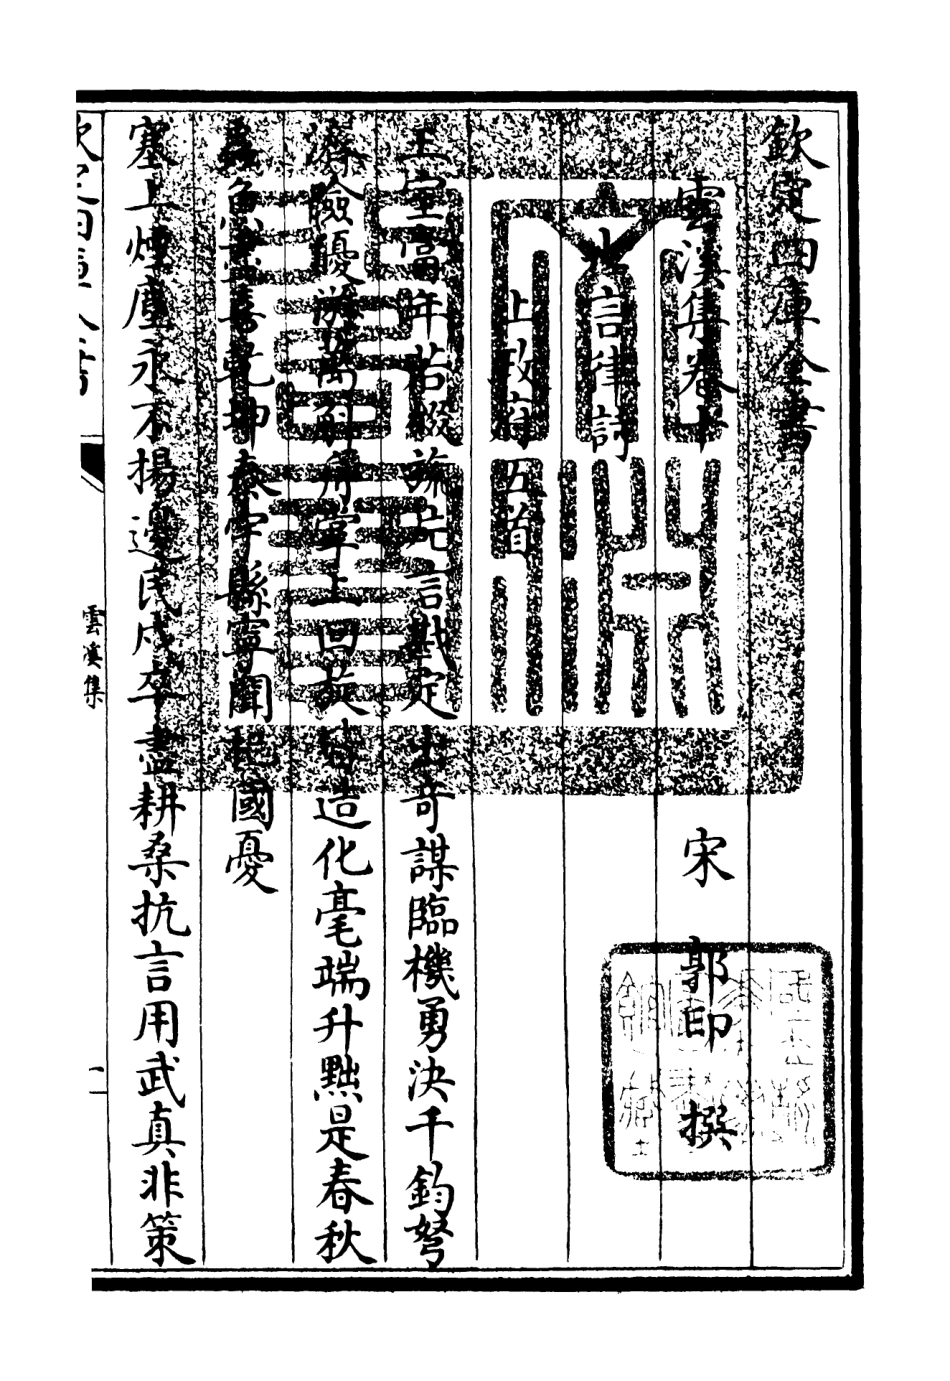 欽定四庫全書
雲溪集卷十 宋 郭印 撰
七言律詩
上政府五首
王室當年若綴旒抗言戡定出奇謀臨機勇決千鈞弩
濟險優游萬斛舟掌上回旋皆造化毫端升黜是春秋
蟲魚盡喜乾坤泰宇縣寧聞杞國憂
塞上煙塵永不揚邊民戍卒盡耕桑抗言用武真非策
雲溪集
一